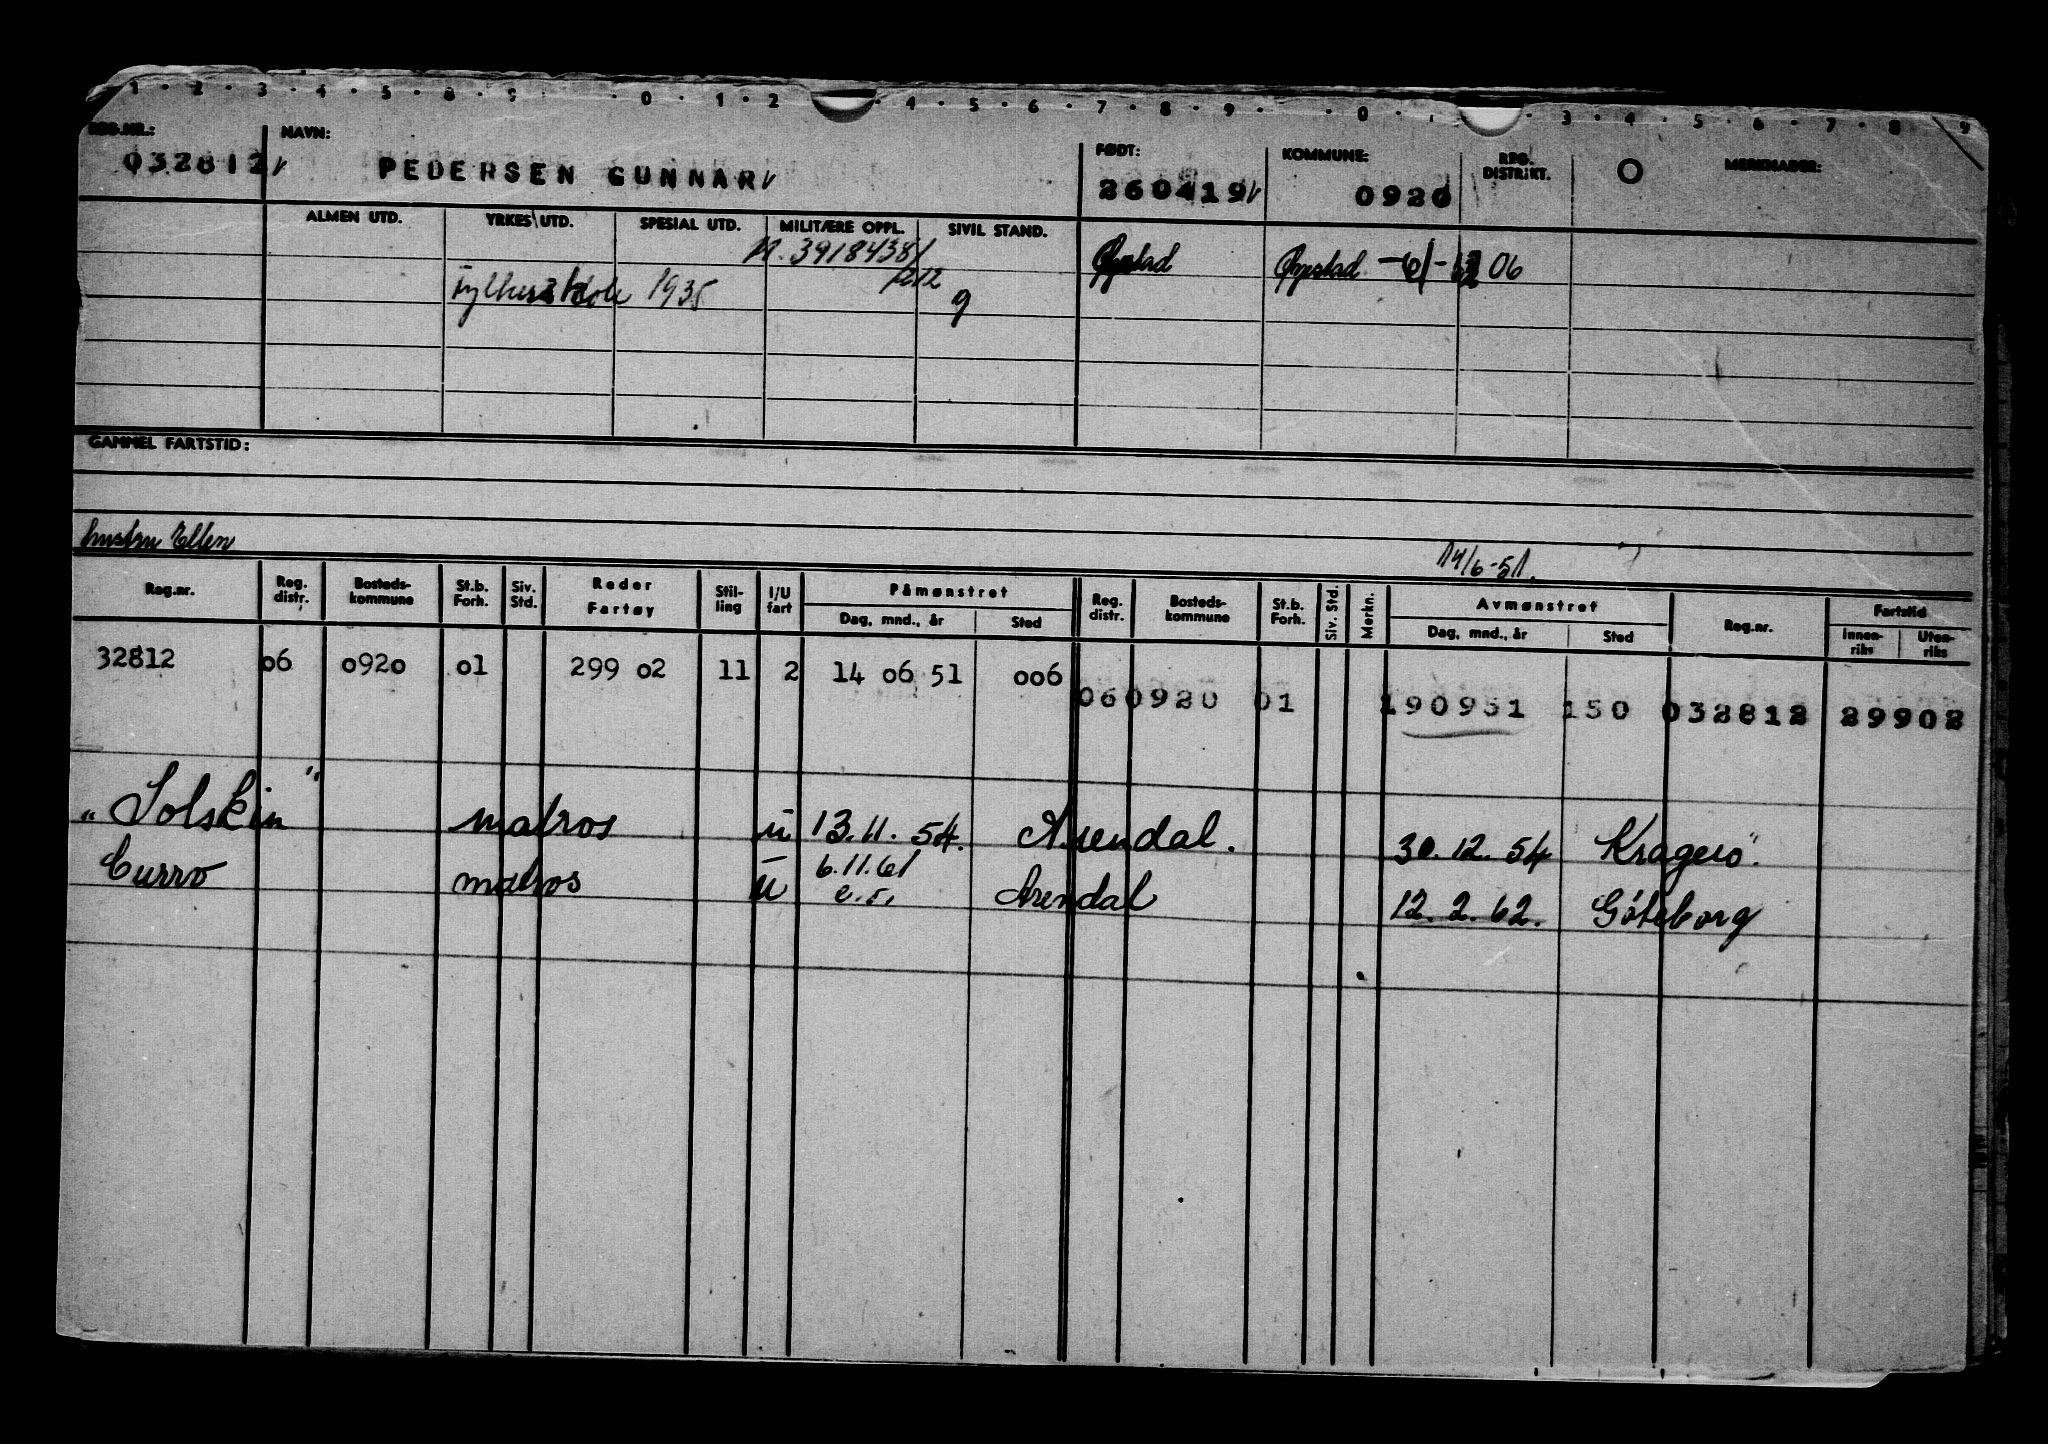 1 · 2 · 3 · 4 · 5 · 6 · 9 · 0 · 1 · 2 · 4 · 5 · 6 · 7 · 8 · 9 · 0 · 3 · 4 · 5 · 6 · 7 · 8 · 9
REG.NR.: NAVN: FØDT: KOMMUNE: REG. DISTRIKT. O MERKNADER:
032812 PEDERSEN GUNNAR 260419 0920
ALMEN UTD. YRKES UTD. SPESIAL UTD. MILITÆRE OPPL. SIVIL STAND.
3918438/ Øyestad Øyestad 06
1935 212 g
GAMMEL FARTSTID:
hustru Ellen
14/6-51.
Reg.nr. Reg. distr. Bosteds- kommune St.b. Forh. Siv. Std. Reder Fartøy Stil- ling I/U fart Påmønstret Reg. distr. Bosteds- kommune St.b. Forh. Siv. Std. Merkn. Avmønstret Reg.nr. Fartstid
Dag, mnd., år Sted Dag, mnd., år Sted Innen- riks Uten- riks
32812 06 0920 01 299 02 11 2 14 06 51 006
060920 01 190951 150 032812 29902
"Solskin" matros u 13.11.54. Arendal. 30.12.54 Kragerö.
Curro matros u 6.11.61 e.r. Arendal 12.2.62. Göteborg